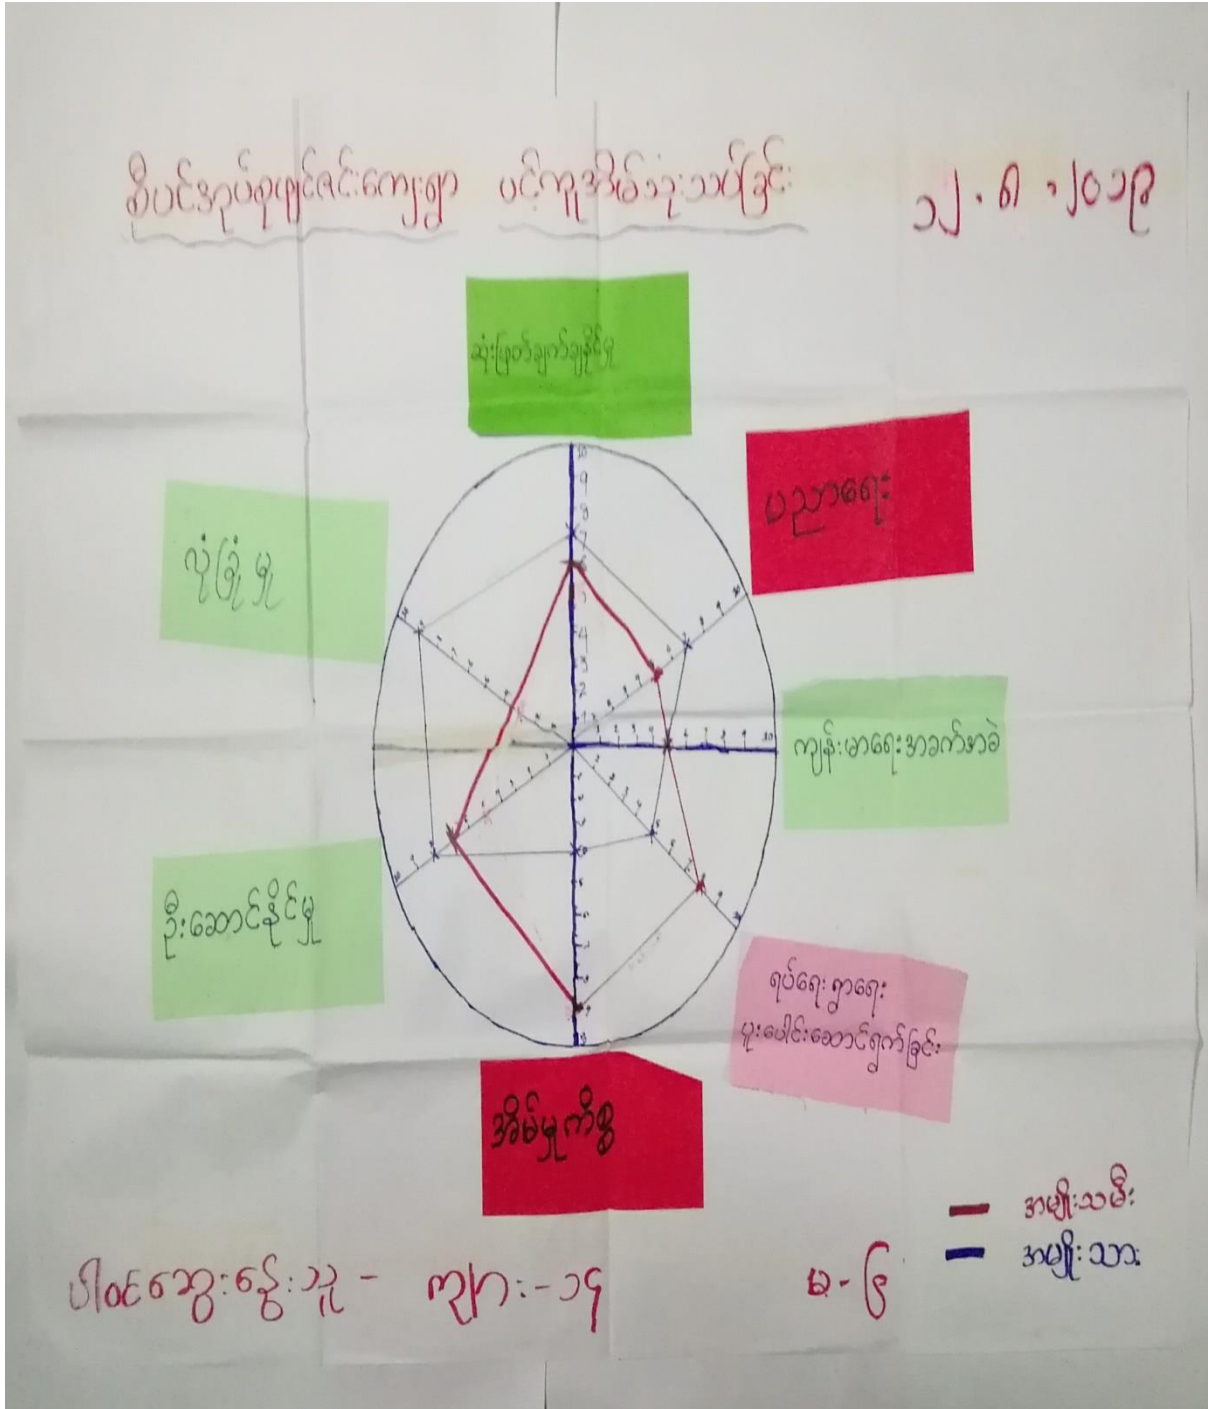 စီပင်အုပ်စုဖျင်ဇင်းကျေးရွာ ပင့်ကူအိမ်သုံးသပ်ခြင်း ၁၂.၈.၂၀၁၉
ဆုံးဖြတ်ချက်ချနိုင်မှု
ပညာရေး
လုံခြုံမှု
ကျန်းမာရေးအခက်အခဲ
ဦးဆောင်နိုင်မှု
ရပ်ရေးရွာရေး
ပူးပေါင်းဆောင်ရွက်ခြင်း
အိမ်မှုကိစ္စ
အမျိုးသမီး
အမျိုးသား
ပါဝင်ဆွေးနွေးသူ - ကျား - ၁၄ မ - ၆